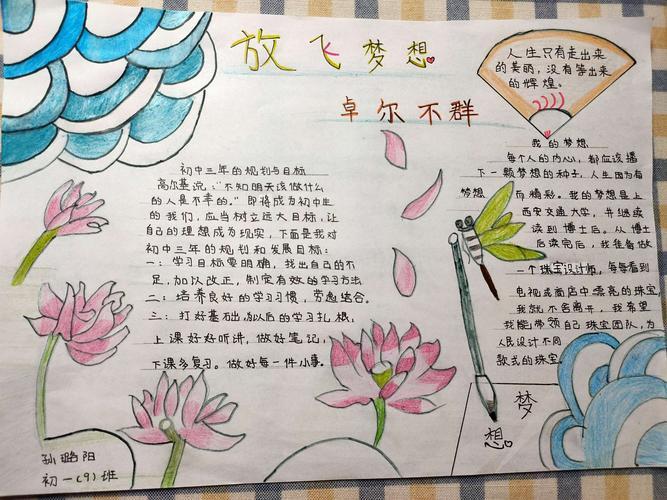 放飞梦想
卓尔不群
人生只有走出来
的美丽，没有等出来
的辉煌。
初中三年的规划与目标
高尔基说："不知明天该做什么
的人是不幸的。"即将成为初中生
的我们，应当树立远大目标，让
自己的理想成为现实，下面是我对
初中三年的规划和发展目标：
一：学习目标要明确，找出自己的不
足，加以改正，制定有效的学习方法
二：培养良好的学习习惯，劳逸结合。
三：打好基础，为以后的学习扎根，
上课好好听讲，做好笔记，
下课多复习。做好每一件小事。
我的梦想
每个人的内心，都应该播
下一颗梦想的种子，人生因为有
梦想 而精彩。我的梦想是上
西安交通大学，并继续
读到博士后。从博士
后读完后，我准备做
一个珠宝设计师，每每看到
电视或商店中漂亮的珠宝
我就不舍离开，我希望
我能带领自己珠宝团队，为
人民设计不同
款式的珠宝
梦
想
孙璐阳
初一(9)班